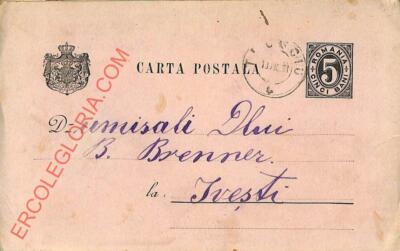 CARTA POSTALA
ROMANIA
5
CINCI BANI
D-umisali Dlui
B. Brenner.
la Ivești
ERCOLEGLORIA.COM